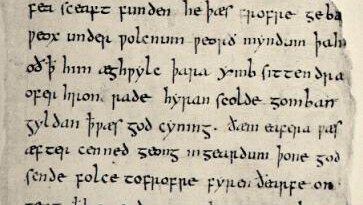 fea sceaft funden he þæs frofre geba
ƿeox under ƿolcnum ƿeorð myndum þah
oð ꝥ him æghƿylc þara ymb sittendra
ofer hron rade hyran scolde gomban
gyldan ꝥ ƿæs god cyning. ðæm eafera ƿæs
æfter cenned geong in geardum þone god
sende folce tofrofre fyren ðearfe on